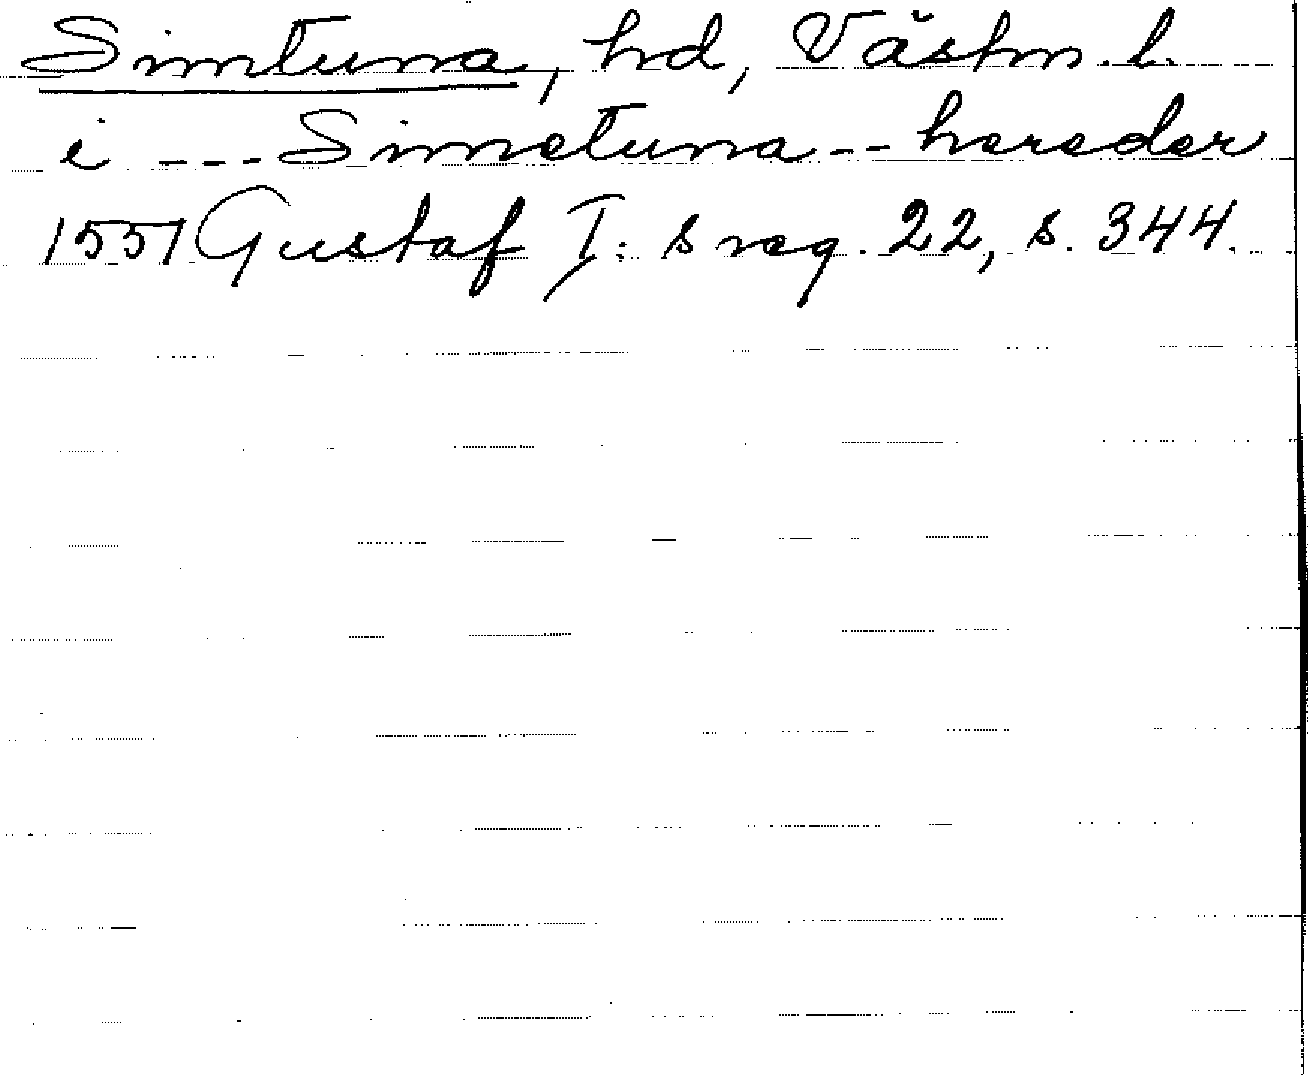 Simtuna, hd, Västm. l.
i --- Simetuna -- hereder
1551 Gustaf I:s reg. 22, s. 344.